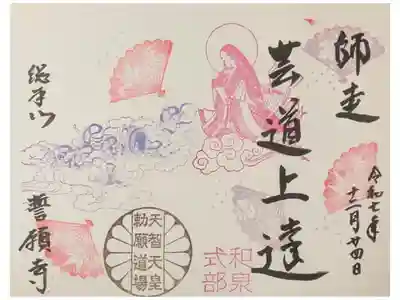 師走
芸道上達
令和七年
十二月廿四日
和泉
式部
天智天皇
勅願道場
総本山
誓願寺